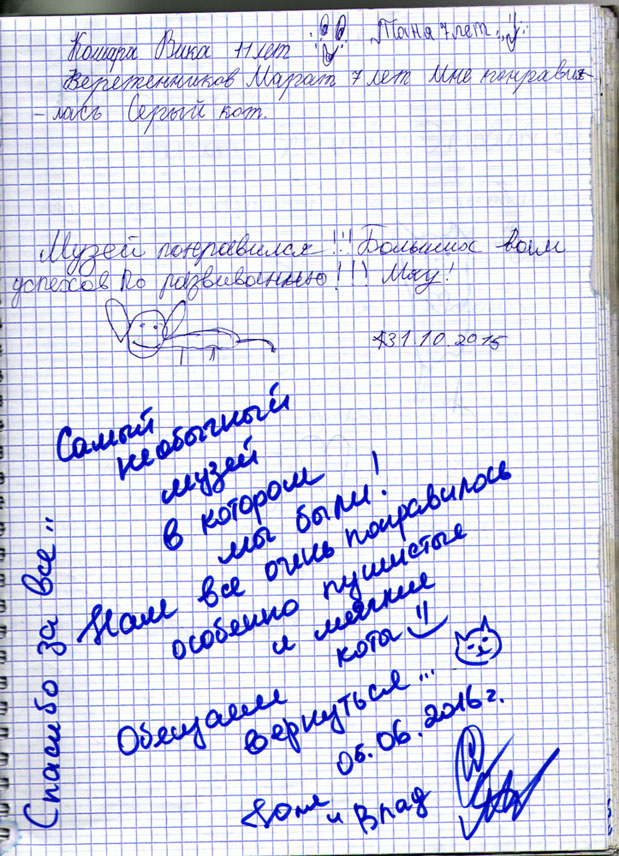 Кошара Вика 11 лет Таня 7 лет
Веретенников Марат 7 лет Мне понрави-
-лась Серый кот.
Музей понравился!!! Больших вам
успехов по развиванию!!! Мяу!
31.10.2015
Самый
необычный
музей
в котором
мы были!
Нам все очень понравилось
особенно пушистые
и мягкие
кота
Обещаем
вернуться...
06.06.2016г.
и Влад
Спасибо за все..